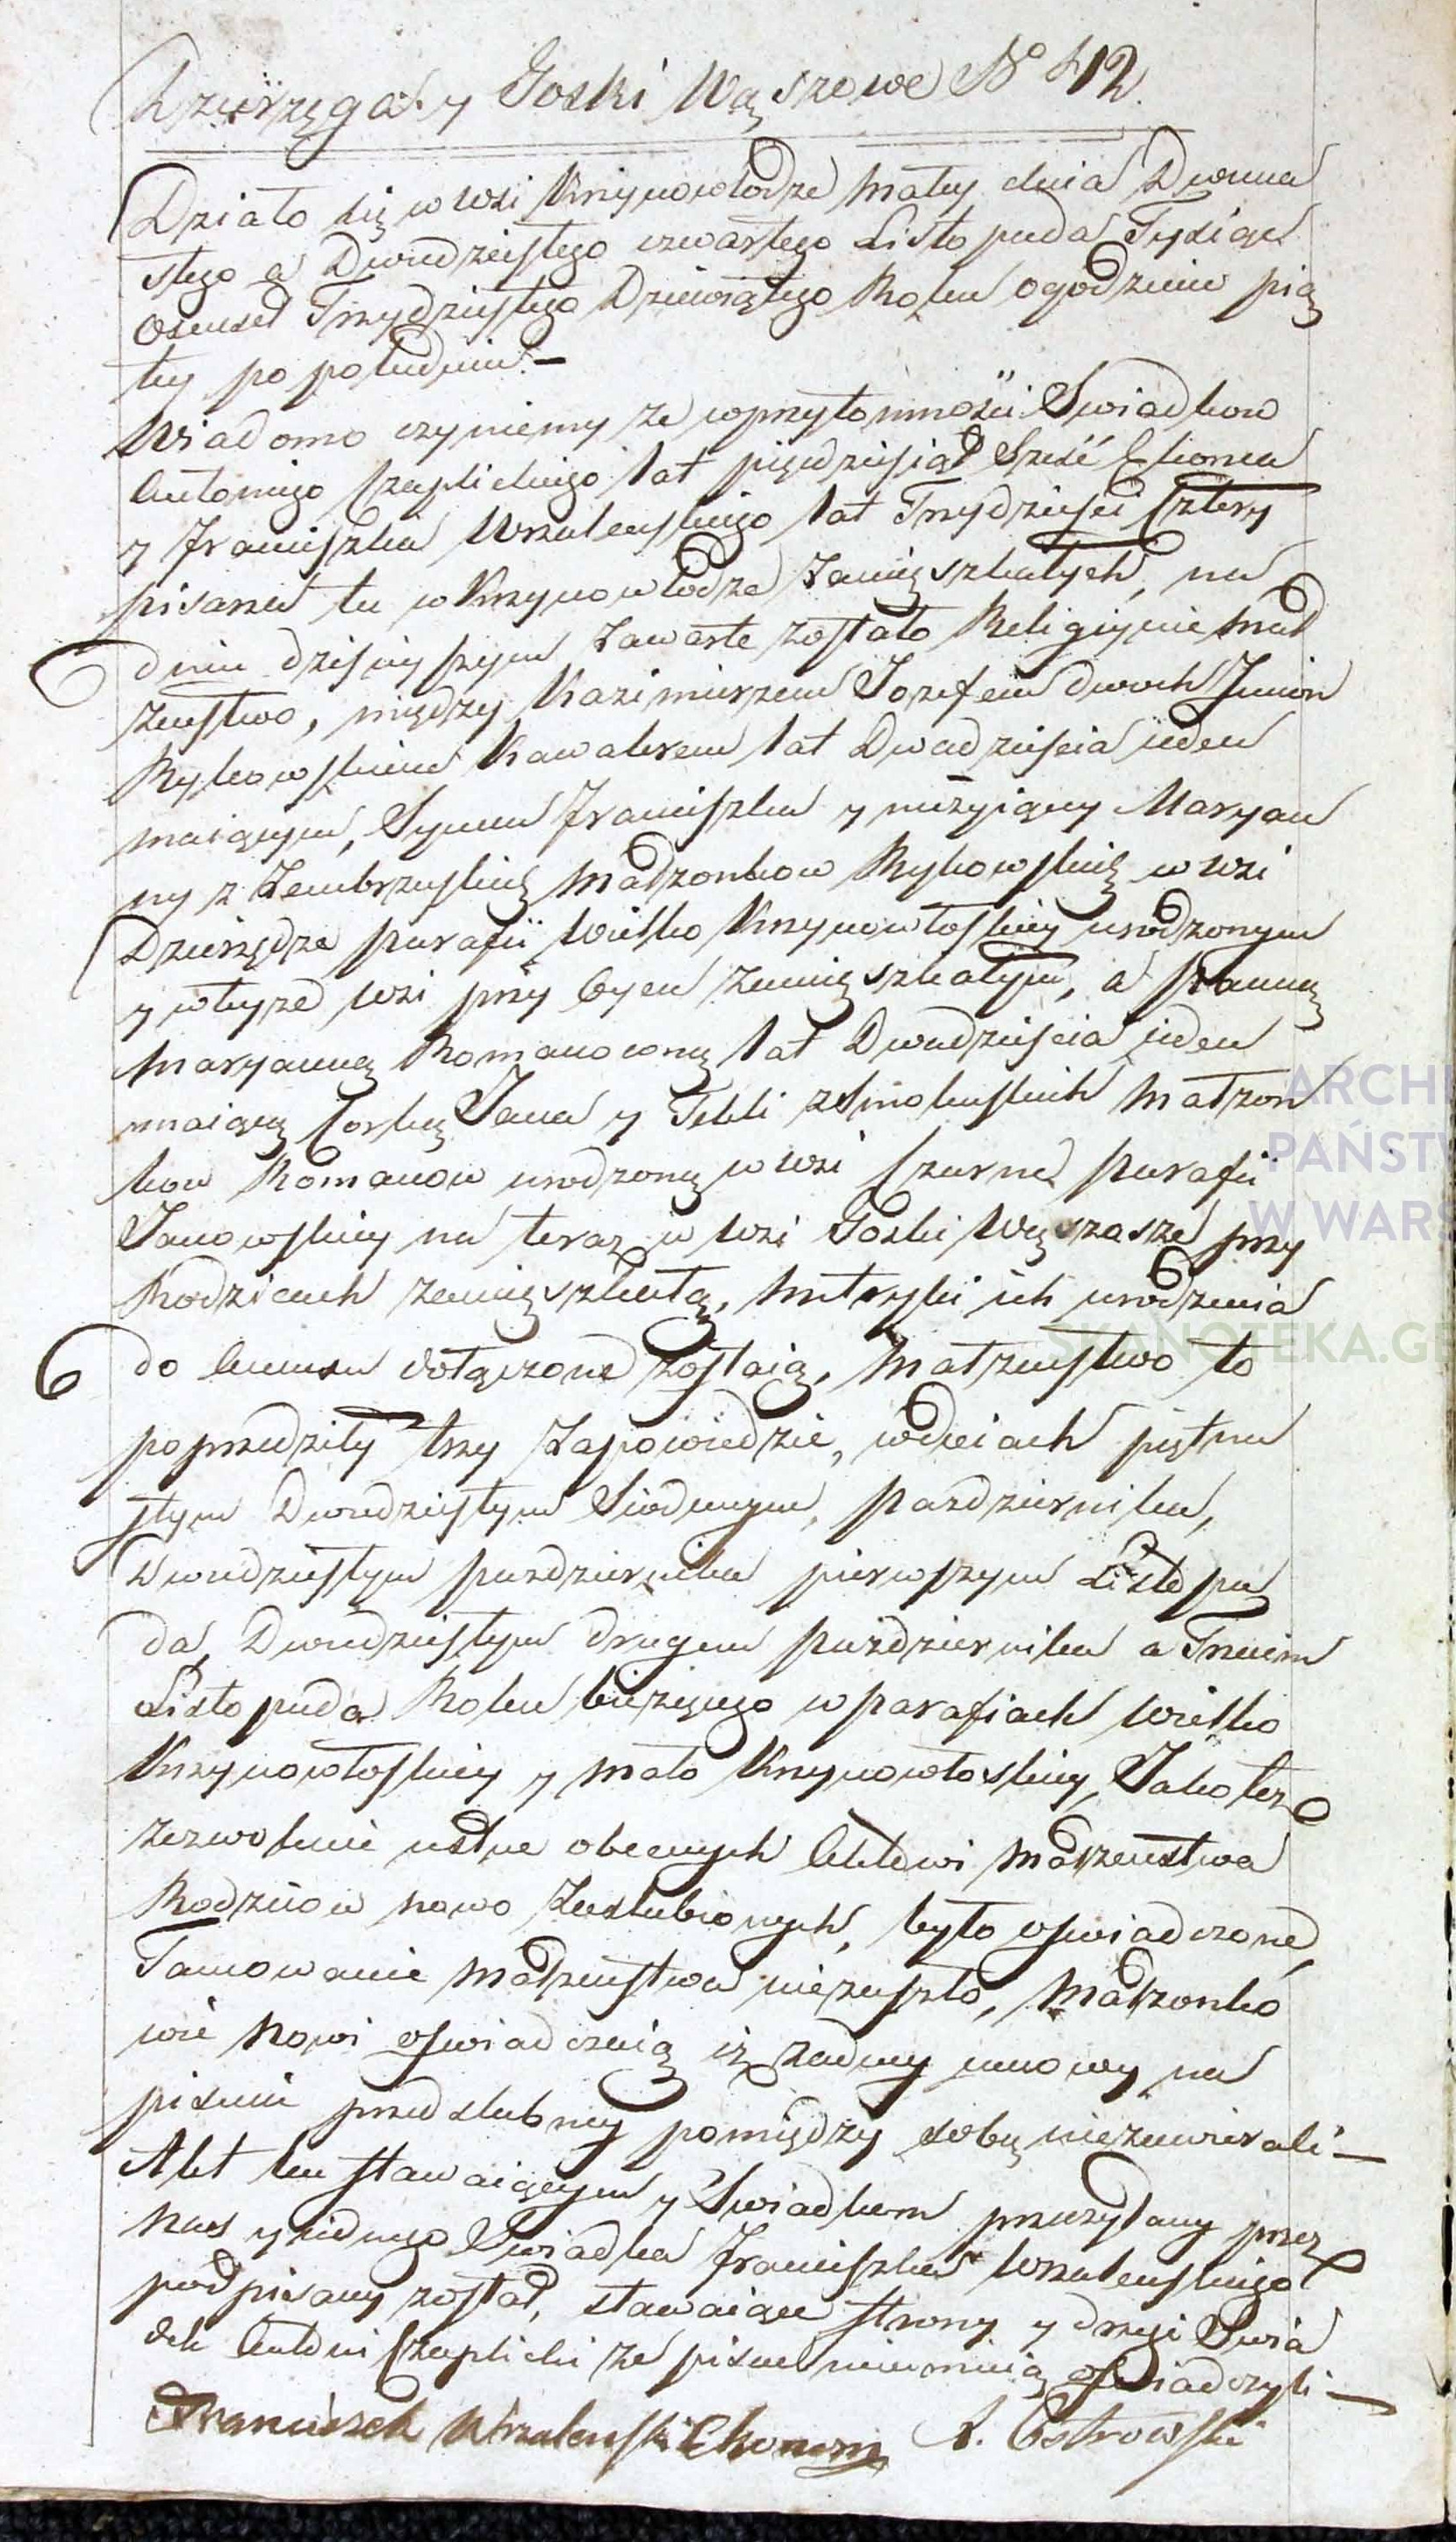 Dzierzęga y Goski Wąszowe No 12.
Działo się w wsi Krzynowłodze Małey dnia Dwuna
stego a Dwudziestego czwartego Listopada Tysiąc
Osemset Trzydziestego Dziewiątego Roku o godzinie pią
tey po południu. —
Wiadomo czyniemy ze w przytomności Swiadkow
Antoniego Czaplickiego lat pięcdziesiąt Szesć Ekonoma
y Franciszka Wrzalenskiego lat Trzydziesci Cztery
pisarza tu w Krzynowłodze Zamięszkałych, na
dniu dzisieyszym Zawarte zostało Religiynie Mał
zenstwo, między Kazimierzem Jozefem dwoch Imion
Rykowskiem Kawalerem lat Dwadziescia ieden
maiącym, Synem Franciszka y niezyiącey Maryan
ny z Zembrzuskich Małzonkow Rykowskich w wsi
Dzierzędze parafii Wielko Krzynowłoskiey urodzonym
y w teyze wsi przy Oycu Zamięszkałym, a Panną
Maryanną Romanowną lat Dwadziescia ieden
maiącą Corką Jana y Tekli z Smolenskich Małzon
kow Romanow urodzoną w wsi Czarne Parafii
Janowskiey na teraz w wsi Goski Wąszosze przy
Rodzicach zamięszkałą, Metryki ich urodzenia
do Annexu dołączone zostaią, Małzenstwo to
poprzedziły trzy Zapowiedzie, w dniach piętna
stym Dwudziestym Siodmym, Pazdziernika,
Dwudziestym pazdziernika pierwszym Listopa
da, Dwudziestym drugem pazdziernika a Trzecim
Listopada Roku bieżącego w parafiach Wielko
Krzynowłoskiey y Mało Krzynowłoskiey, Jako tez
zezwolenie ustne obecnych Aktowi Małzenstwa
Rodzicow nowo Zaslubionych, było oswiadczone,
Tamowanie Małzenstwa niezaszło, Małzonko
wie Nowi oswiadczaią iz zadney umowy na
pismie przedslubney pomiędzy sobą niezawierali —
Akt ten stawaiącym y Swiadkom przeczytany przez
Nas y iednego Swiadka Franciszka Wrzalenskiego
podpisany został, stawaiące strony y drugi Swia
dek Antoni Czaplicki ze pisac nieumieią oswiadczyli —
Franciszek Wrzalenski Ekonom A. Ostrowski
ARCHI
PAŃSTW
W WARS
SKANOTEKA.GE